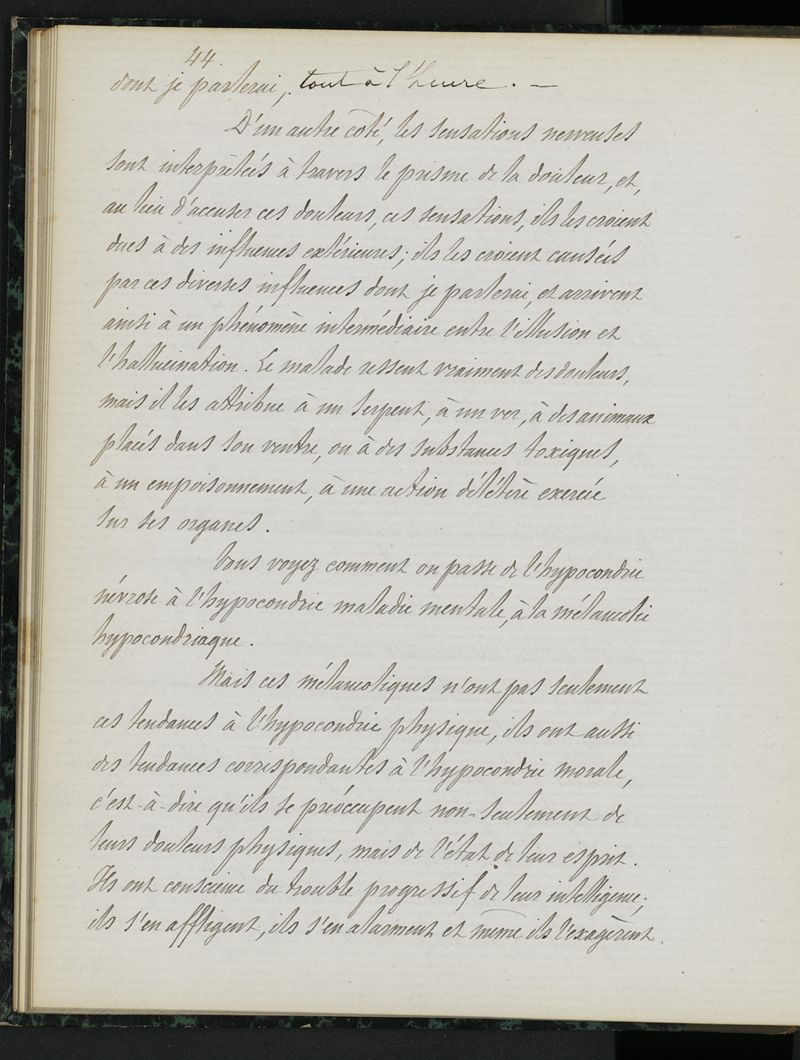 44
dont je parlerai, tout à l'heure. —
D'un autre côté, les sensations nerveuses
sont interprêtées à travers le prisme de la douleur, et,
au lieu d'accuser ces douleurs, ces sensations, ils les croient
dues à des influences extérieures; ils les croient causées
par ces diverses influences dont je parlerai, et arrivent
ainsi à un phénomène intermédiaire entre l'illusion et
l'hallucination. Le malade ressent vraiment des douleurs,
mais il les attribue à un serpent, à un ver, à des animaux
placés dans son ventre, ou à des substances toxiques,
à un empoisonnement, à une action délétère exercée
sur ses organes.
Vous voyez comment on passe de l'hypocondrie
névrose à l'hypocondrie maladie mentale, à la mélancolie
hypocondriaque.
Mais ces mélancoliques n'ont pas seulement
ces tendances à l'hypocondrie physique, ils ont aussi
des tendances correspondantes à l'hypocondrie morale,
c'est-à-dire qu'ils se préoccupent non-seulement de
leurs douleurs physiques, mais de l'état de leur esprit.
Ils ont conscience du trouble progressif de leur intelligence;
ils s'en affligent, ils s'en alarment et même ils l'exagèrent.